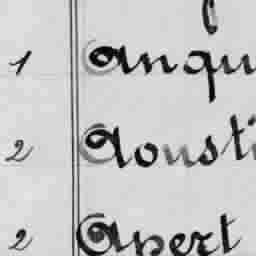 1 Anqu
2 Aousti
2 Apert